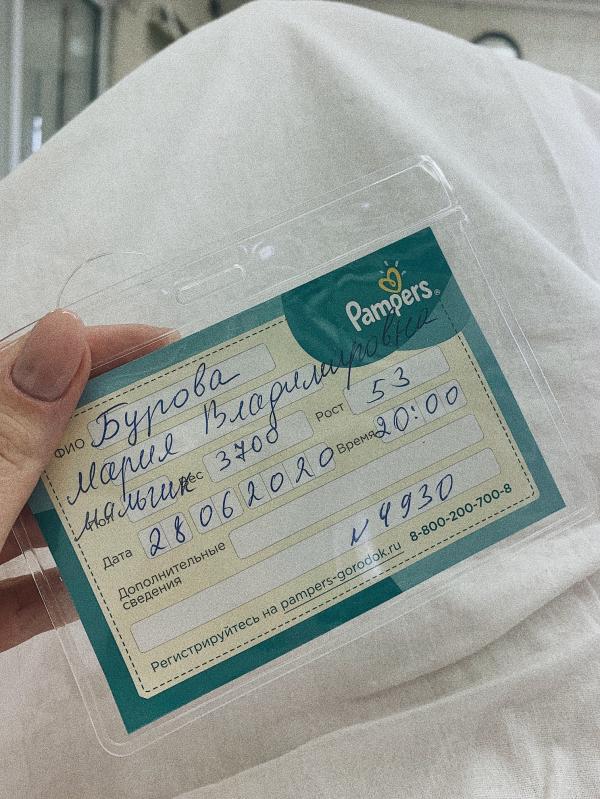 Pampers®
ФИО Бурова
Мария Владимировна
мальчик Вес 3700 Рост 53
Дата 28 06 2020 Время 20:00
Дополнительные
сведения
N 4930
Регистрируйтесь на pampers-gorodok.ru 8-800-200-700-8